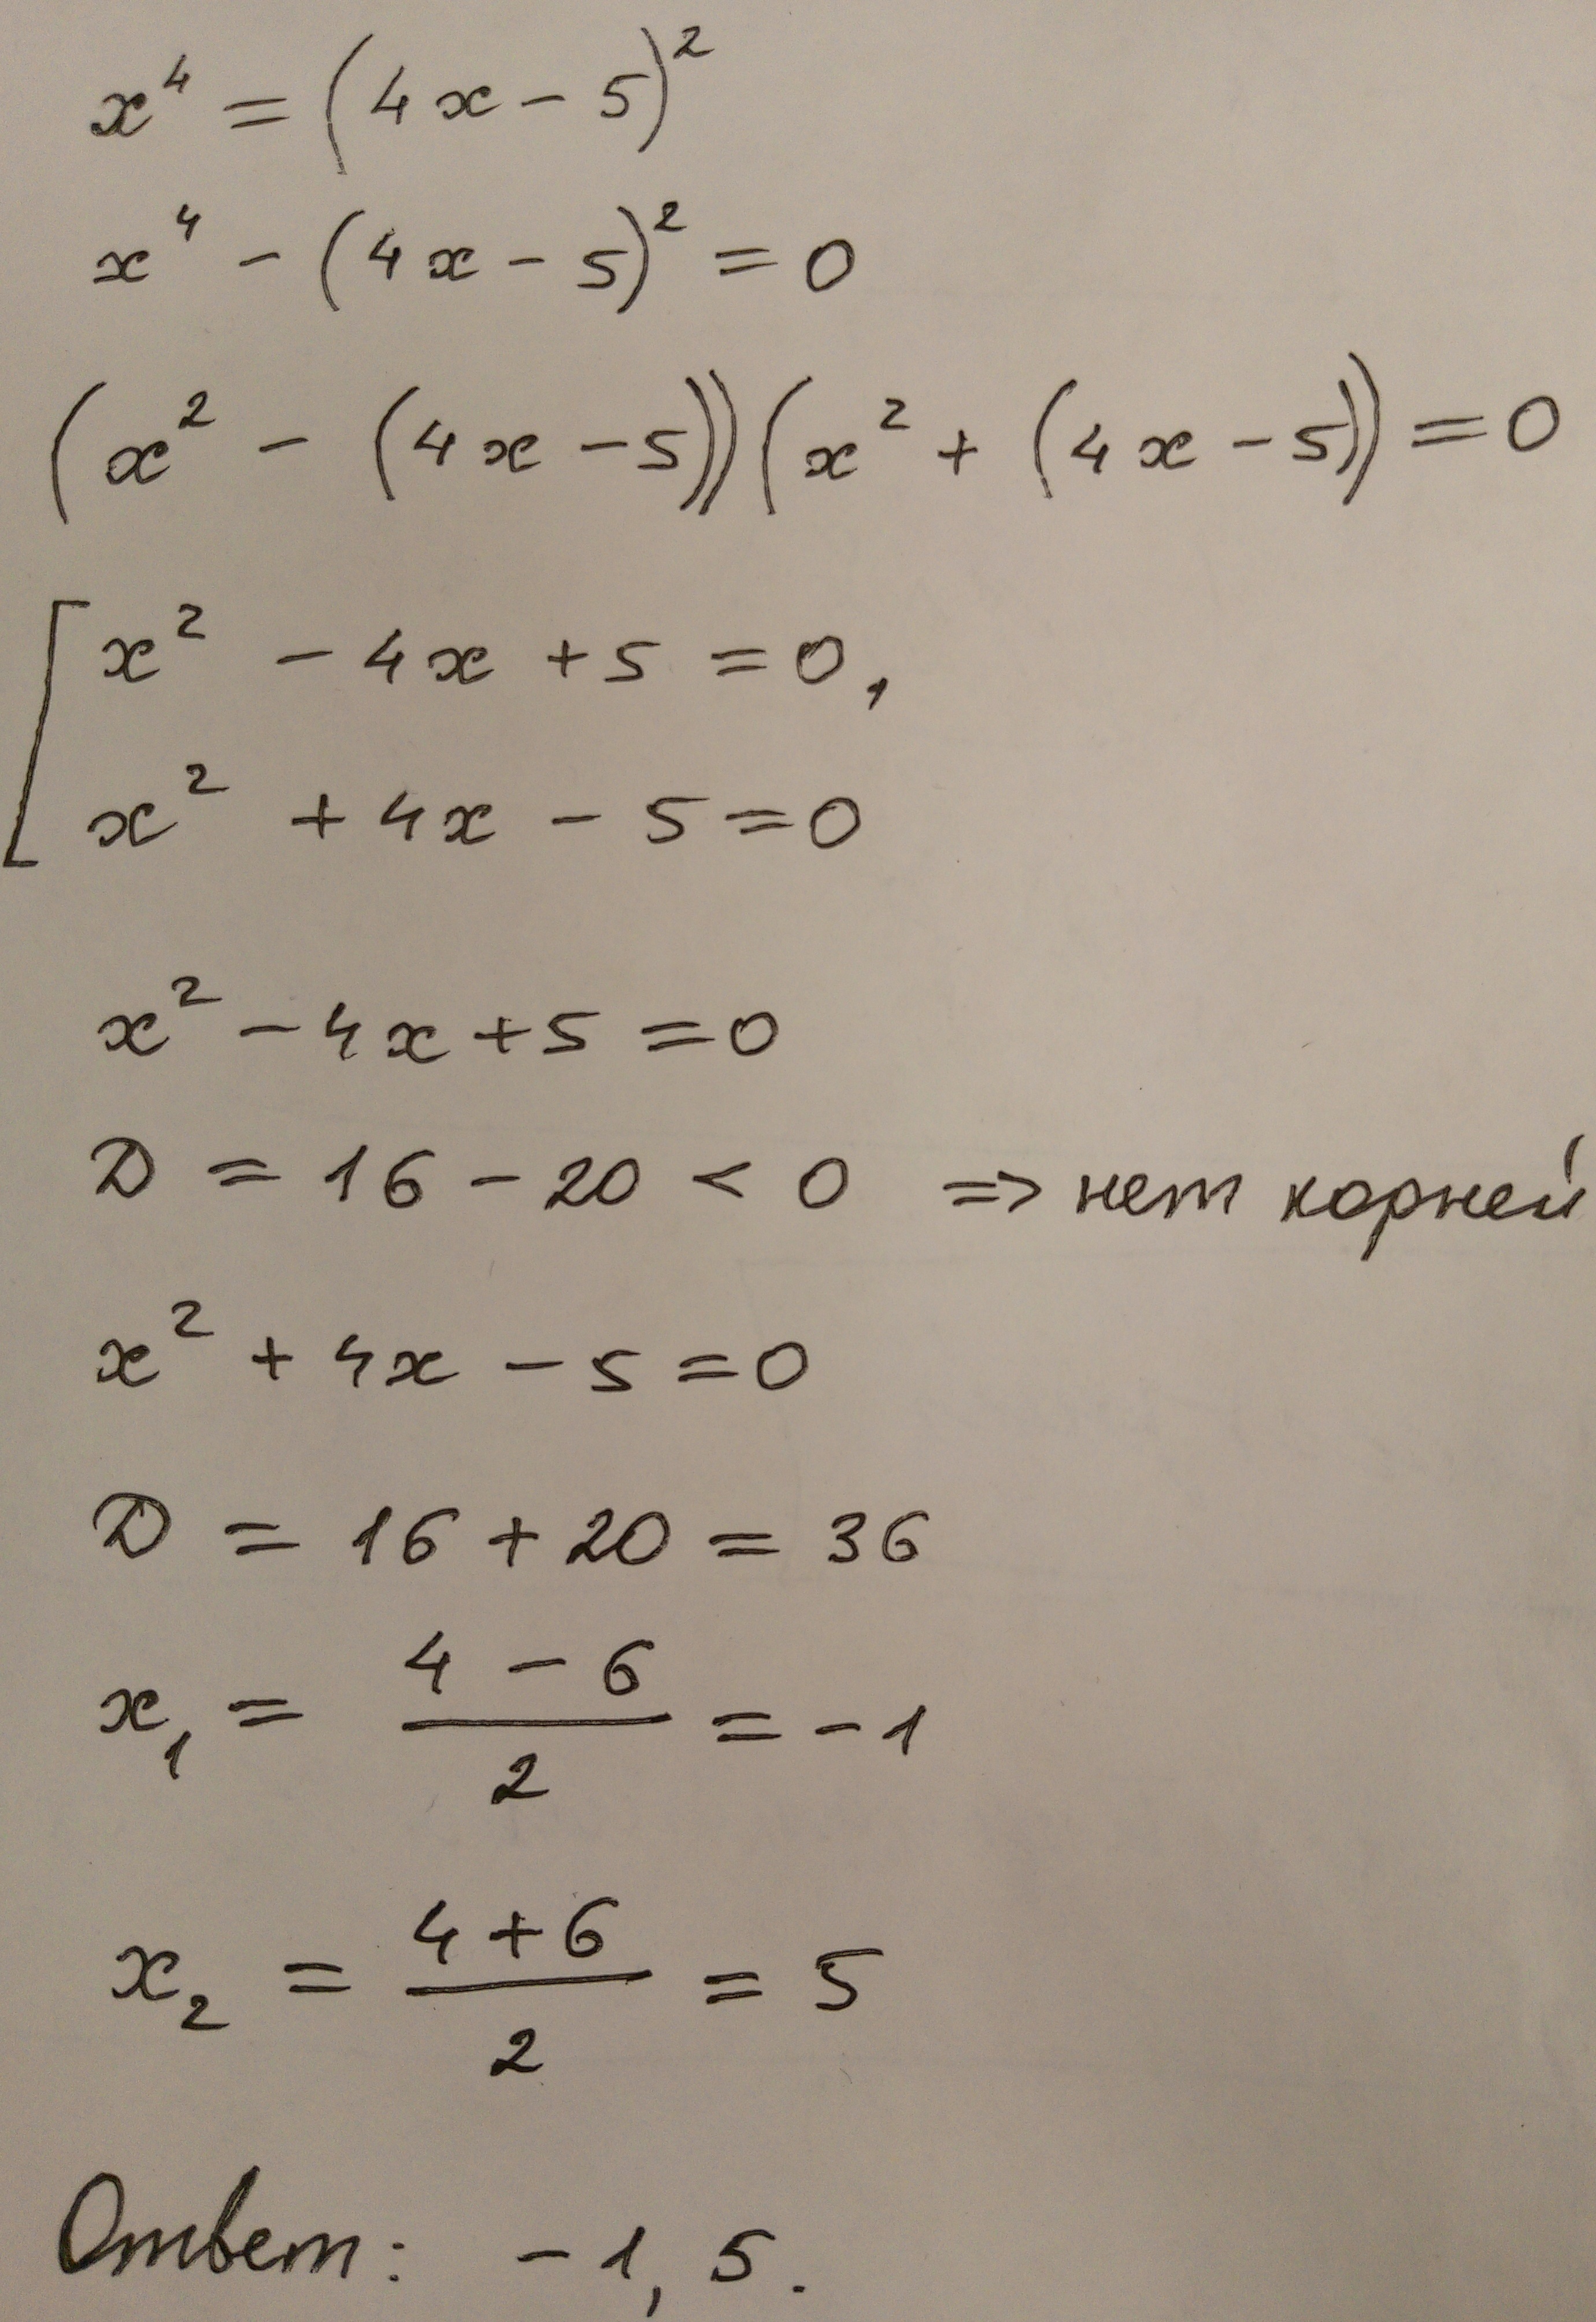 x⁴ = (4x - 5)²
x⁴ - (4x - 5)² = 0
(x² - (4x - 5))(x² + (4x - 5)) = 0
[ x² - 4x + 5 = 0,
x² + 4x - 5 = 0
x² - 4x + 5 = 0
D = 16 - 20 < 0 => нет корней
x² + 4x - 5 = 0
D = 16 + 20 = 36
x₁ = (4 - 6)/2 = -1
x₂ = (4 + 6)/2 = 5
Ответ: -1, 5.